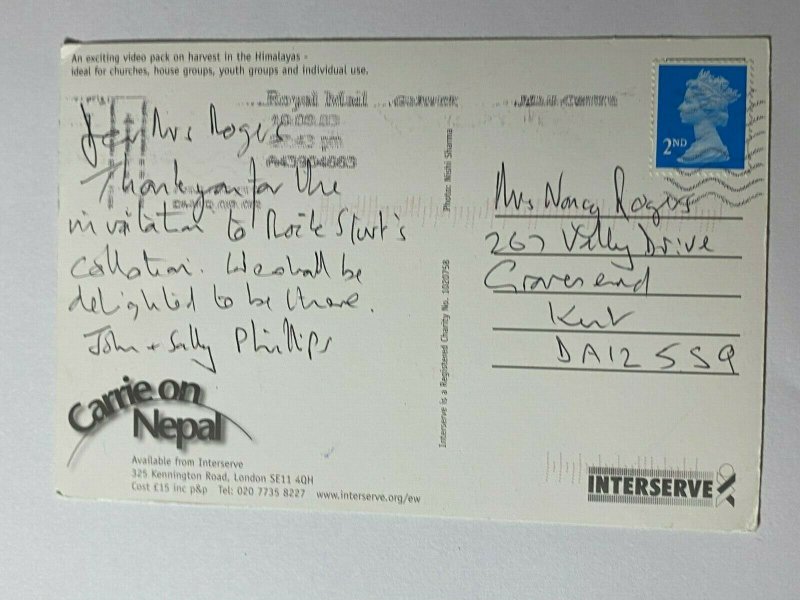 An exciting video pack on harvest in the Himalayas -
ideal for churches, house groups, youth groups and individual use.
Royal Mail
Dear Mrs Rogers
Thank you for the
invitation to
collation. We shall be
delighted to be there.
John + Sally Phillips
Carrie on
Nepal
Available from Interserve
325 Kennington Road, London SE11 4QH
Cost £15 inc p&p Tel: 020 7735 8227 www.interserve.org/ew
Photo: Nishi Sharma
Interserve is a Registered Charity No. 1020758
2ND
Mrs Nancy Rogers
267 Valley Drive
Gravesend
Kent
DA12 5S9
INTERSERVE